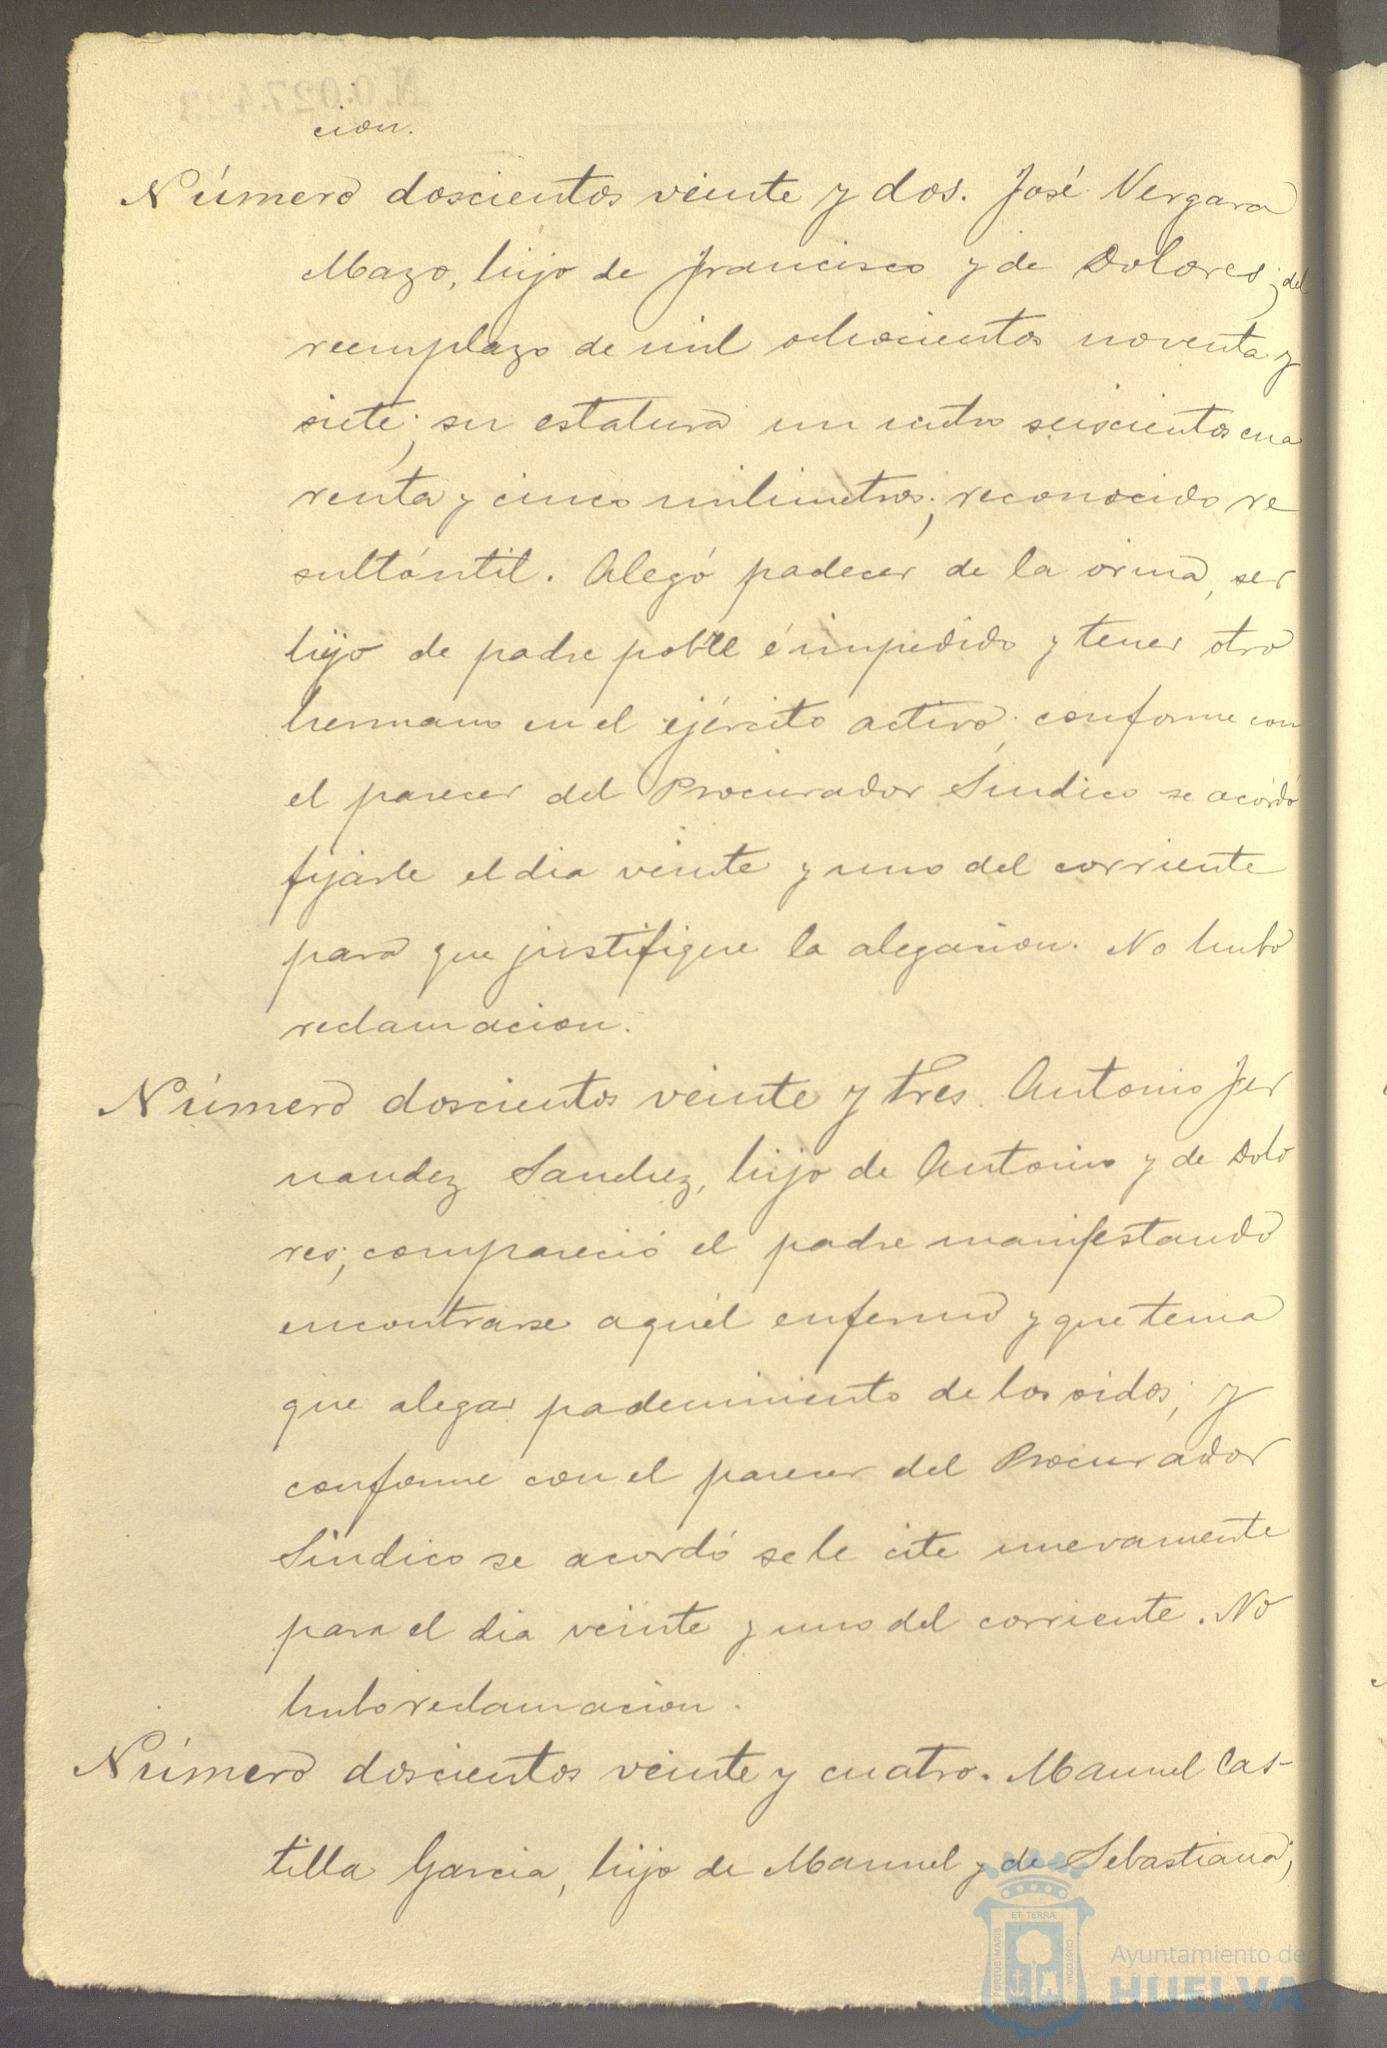 N.0.027.423
cion.
Número doscientos veinte y dos. José Vergara
Mazo, hijo de Francisco y de Dolores; del
reemplazo de mil ochocientos noventa y
siete; su estatura un metro seiscientos cua
renta y cinco milimetros; reconocido re
sultó útil. Alegó padecer de la orina, ser
hijo de padre pobre é impedido y tener otro
hermano en el ejército activo; conforme con
el parecer del Procurador Sindico se acordó
fijarle el dia veinte y uno del corriente
para que justifique la alegacion. No hubo
reclamacion.
Número doscientos veinte y tres. Antonio Fer
nandez Sanchez, hijo de Antonio y de Dolo
res; compareció el padre manifestando
encontrarse aquél enfermo y que tenia
que alegar padecimiento de los oidos; y
conforme con el parecer del Procurador
Síndico se acordó se le cite nuevamente
para el dia veinte y uno del corriente. No
hubo reclamacion.
Número doscientos veinte y cuatro. Manuel Cas-
tilla Garcia, hijo de Manuel y de Sebastiana;
PORTUS MARIS ET TERRÆ CUSTODIA
Ayuntamiento de
HUELVA